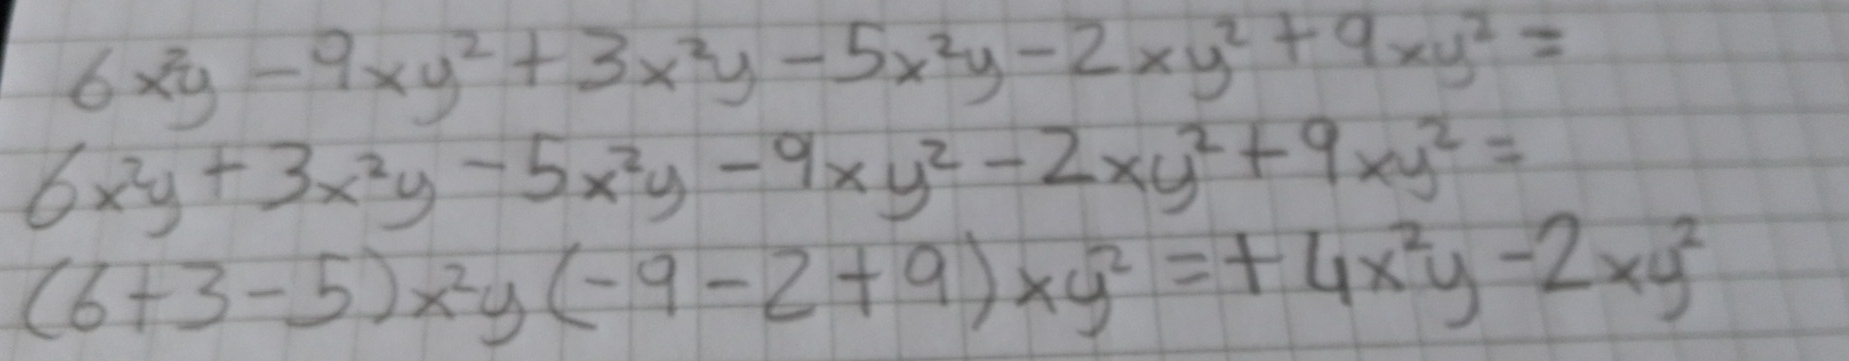 6x²y - 9xy² + 3x²y - 5x²y - 2xy² + 9xy² =
6x²y + 3x²y - 5x²y - 9xy² - 2xy² + 9xy² =
(6+3-5)x²y(-9-2+9)xy² = + 4x²y - 2xy²